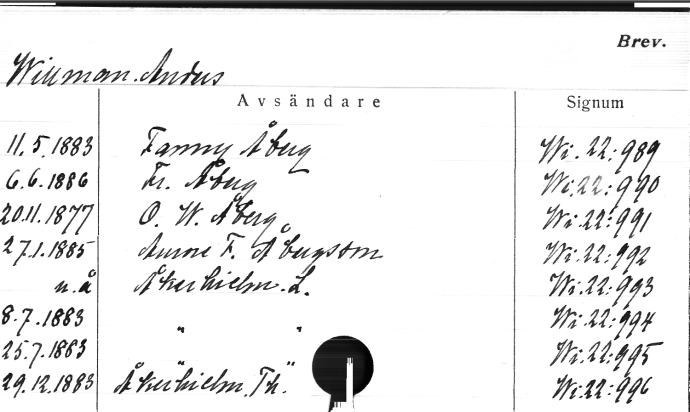 Brev.
Willman. Anders
Avsändare Signum
11.5.1883 Fanny Åberg Wi.22:989
6.6.1886 Fr. Åberg Wi.22:990
20.11.1877 O. W. Åberg Wi.22:991
27.1.1885 F. Åbergsson Wi.22:992
u.å Åkerhielm. L. Wi.22:993
8.7.1883 " " Wi.22:994
25.7.1883 " " Wi.22:995
29.12.1883 Åkerhielm, Th. Wi.22:996